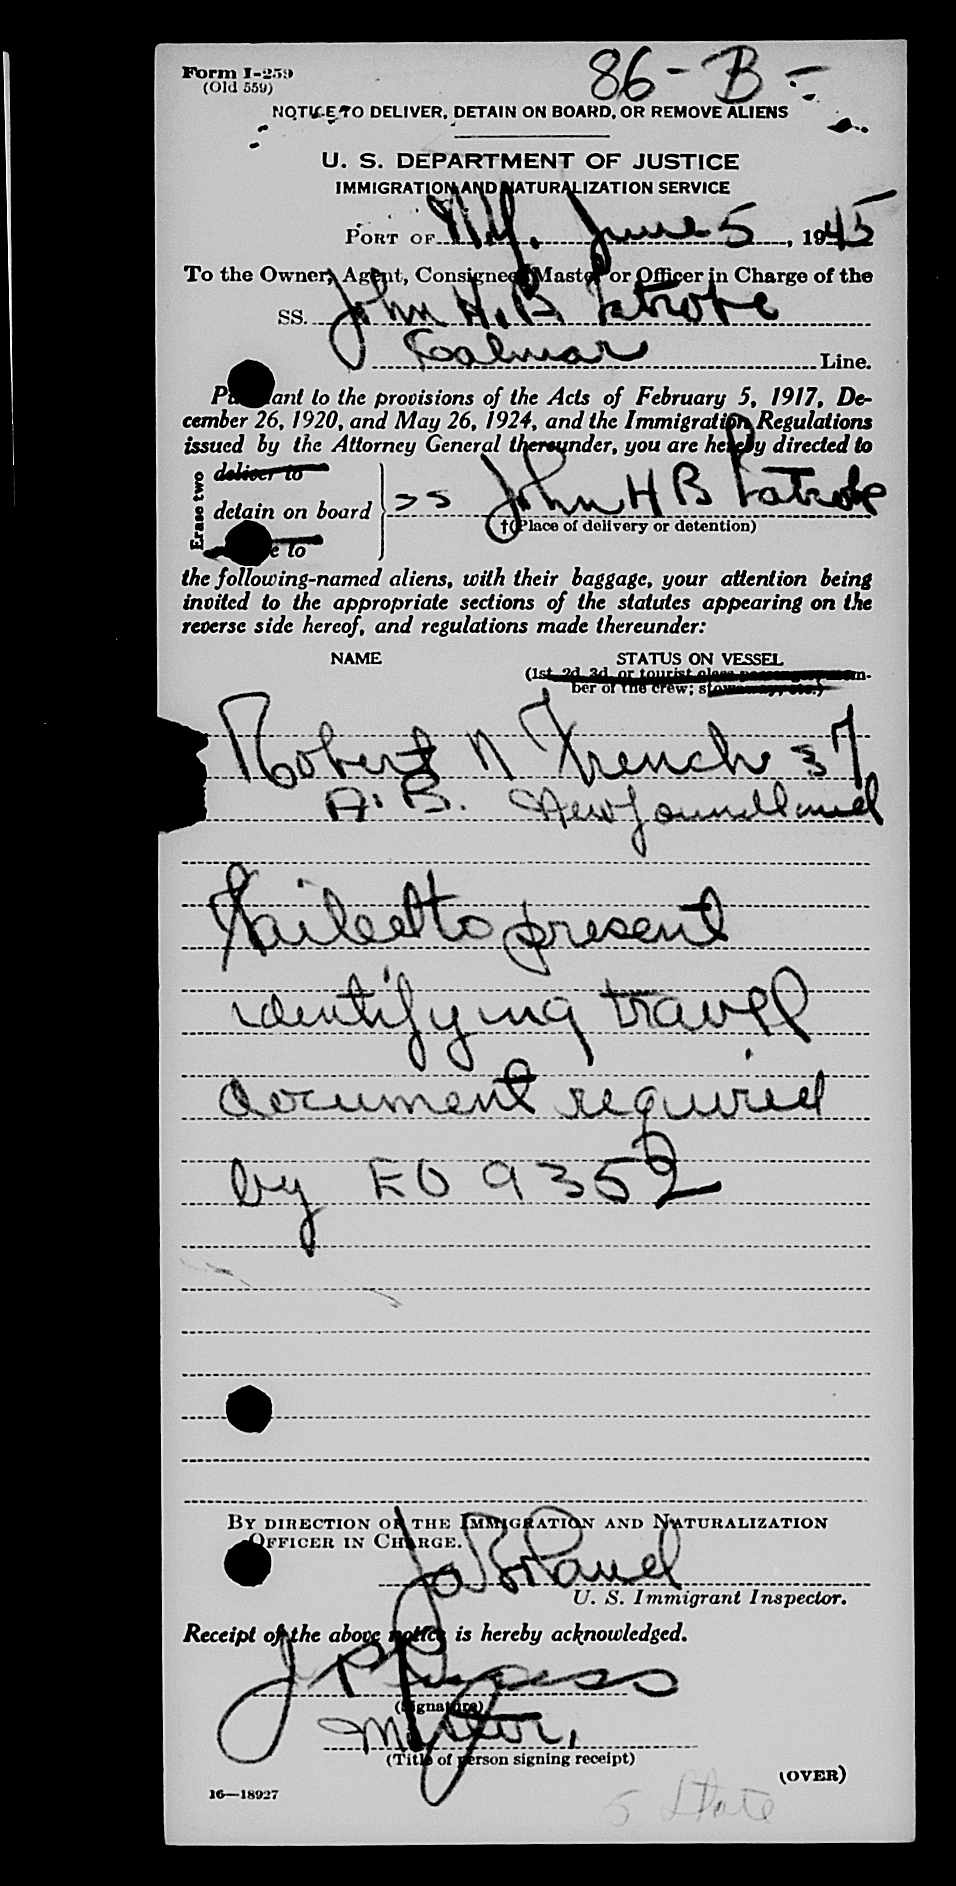 Form I-259
(Old 559)
86-B-
NOTICE TO DELIVER, DETAIN ON BOARD, OR REMOVE ALIENS
U. S. DEPARTMENT OF JUSTICE
IMMIGRATION AND NATURALIZATION SERVICE
PORT OF N.Y. June 5, 1945
To the Owner, Agent, Consignee, Master or Officer in Charge of the
SS. John H. B Latrobe
Calmar Line.
Pursuant to the provisions of the Acts of February 5, 1917, De-
cember 26, 1920, and May 26, 1924, and the Immigration Regulations
issued by the Attorney General thereunder, you are hereby directed to
Erase two
deliver to
detain on board
SS John H B Latrobe
†(Place of delivery or detention)
e to
the following-named aliens, with their baggage, your attention being
invited to the appropriate sections of the statutes appearing on the
reverse side hereof, and regulations made thereunder:
NAME STATUS ON VESSEL
(1st, 2d, 3d, or tourist class passenger, mem-
ber of the crew; stowaway, etc.)
Robert N French 37
A.B. Newfoundland
Failed to present
identifying travel
document required
by EO 9352
BY DIRECTION OF THE IMMIGRATION AND NATURALIZATION
OFFICER IN CHARGE.
U. S. Immigrant Inspector.
Receipt of the above notice is hereby acknowledged.
(Signature)
Master,
(Title of person signing receipt)
(OVER)
16—18927
5 State